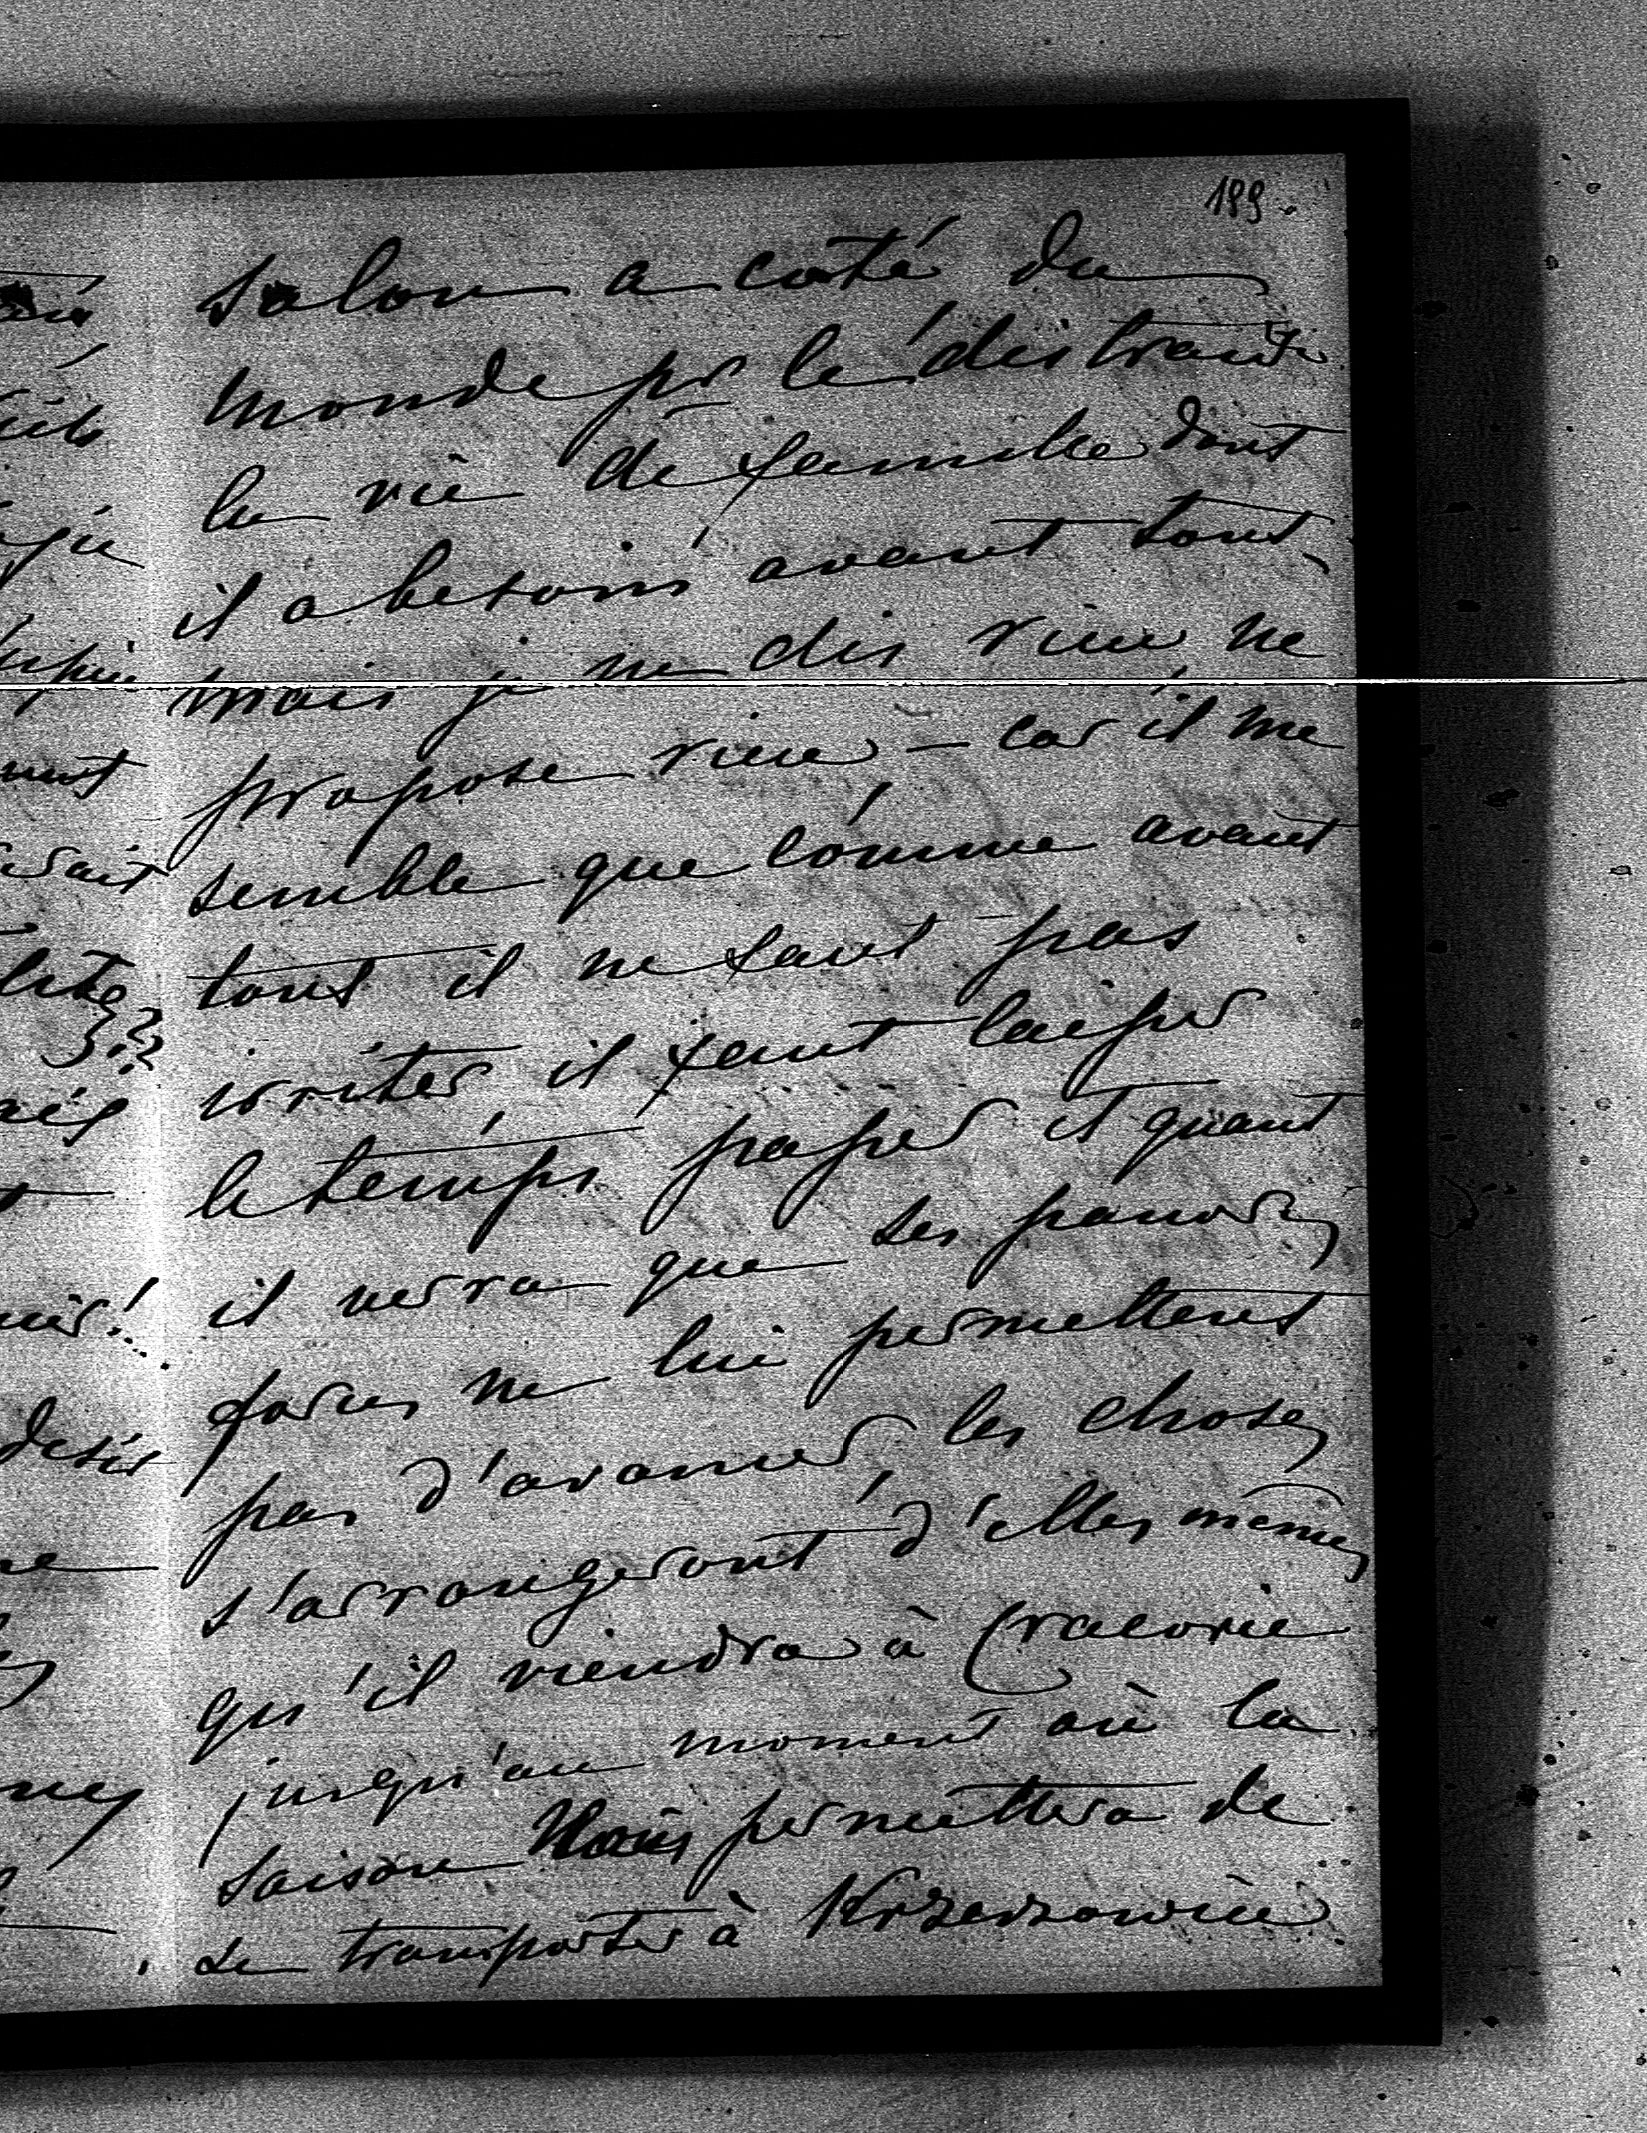 189
salon a coté du
monde pr le distraire
la vie de famille dont
il a besoin avant tout,
mais je ne dis rien, ne
propose rien – car il me
semble que comme avant
tout il ne faut pas
irriter il faut laisser
le temps passer et quant
il verra que ses pauvres
forces ne lui permettent
pas d'avancer les choses
s'arrangeront d'elles mêmes
qu'il viendra à Cracovie
jusqu'au moment où la
saison Nous permettera de
se transporter à Krzeszowice